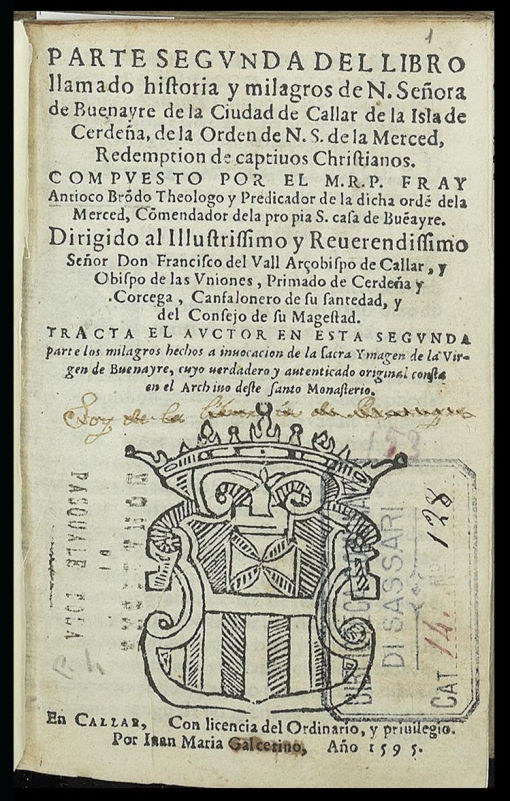 1
PARTE SEGVNDA DEL LIBRO
llamado hiſtoria y milagros de N. Señora
de Buenayre de la Ciudad de Callar de la Isla de
Cerdeña, de la Orden de N. S. de la Merced,
Redemption de captiuos Chriſtianos.
COMPVESTO POR EL M.R.P. FRAY
Antioco Brõdo Theologo y Predicador de la dicha ordẽ dela
Merced, Cõmendador dela propia S. caſa de Buẽayre.
Dirigido al Illuſtriſſimo y Reuerendiſſimo
Señor Don Franciſco del Vall Arçobiſpo de Callar, y
Obiſpo de las Vniones, Primado de Cerdeña y
Corcega, Canfalonero de ſu ſantedad, y
del Conſejo de ſu Mageſtad.
TRACTA EL AVCTOR EN ESTA SEGVNDA
parte los milagros hechos a inuocacion de la ſacra Ymagen de la Vir-
gen de Buenayre, cuyo uerdadero y autenticado original conſta
en el Archiuo deſte ſanto Monaſterio.
Soy de la
PASQUALE
DI SASSARI
CAT 14. No 128
En CALLAR, Con licencia del Ordinario, y priuilegio.
Por Iuan Maria Galcerino, Año 1595.